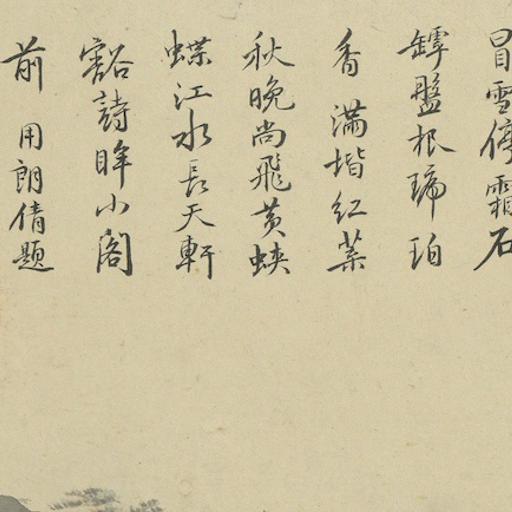 冒雪停霜石
罅盤根琥珀
香滿堦紅葉
秋晚尚飛黃蛺
蝶江水長天軒
豁詩眸小閣
前 用朗倩題